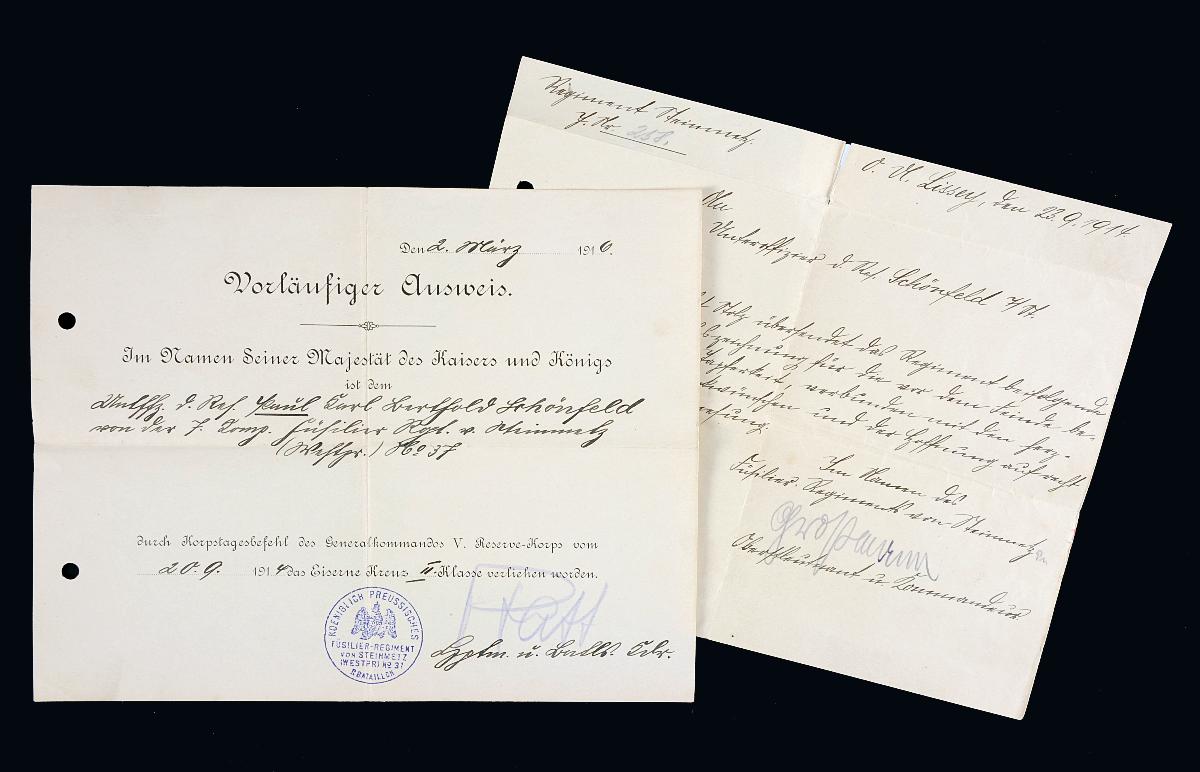 Den 2. März 1916.
Vorläufiger Ausweis.
Im Namen Seiner Majestät des Kaisers und Königs
ist dem
Untffz. d. Res. Paul Carl Berthold Schönfeld
von der 7. Comp. Füsilier Rgt. v. Steinmetz
(Westpr.) No 37
durch Korpstagesbefehl des Generalkommandos V. Reserve-Korps vom
20.9. 1914 das Eiserne Kreuz II. Klasse verliehen worden.
KOENIGLICH PREUSSISCHES
FÜSILIER-REGIMENT
VON STEINMETZ
(WESTPR) No 37
BATAILLON
Hptm. u. Batls. Kdr.
Regiment Steinmetz.
J. Nr. 258.
O. U. Lissey, den 23.9.1914.
An
Unteroffizier d. Res. Schönfeld 7/St.
Stolz übersendet das Regiment beifolgende
für die vor dem Feinde be-
Tapferkeit, verbunden mit den herz-
und der Hoffnung auf recht
Im Namen des
Füsilier-Regiments von Steinmetz
Großmann
Oberstleutnant u. Kommandeur